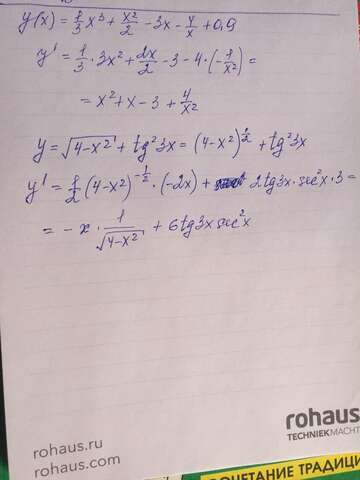 y(x) = 1/3 x³ + x²/2 - 3x - 4/x + 0,9
y' = 1/3 · 3x² + 2x/2 - 3 - 4 · (-1/x²) =
= x² + x - 3 + 4/x²
y = √(4-x²) + tg²3x = (4-x²)^(1/2) + tg²3x
y' = 1/2 (4-x²)^(-1/2) · (-2x) + 2tg3x · sec²x · 3 =
= -x · 1/√(4-x²) + 6tg3x sec²x
rohaus
TECHNIEKMACHT
rohaus.ru
rohaus.com
СОЧЕТАНИЕ ТРАДИЦИ